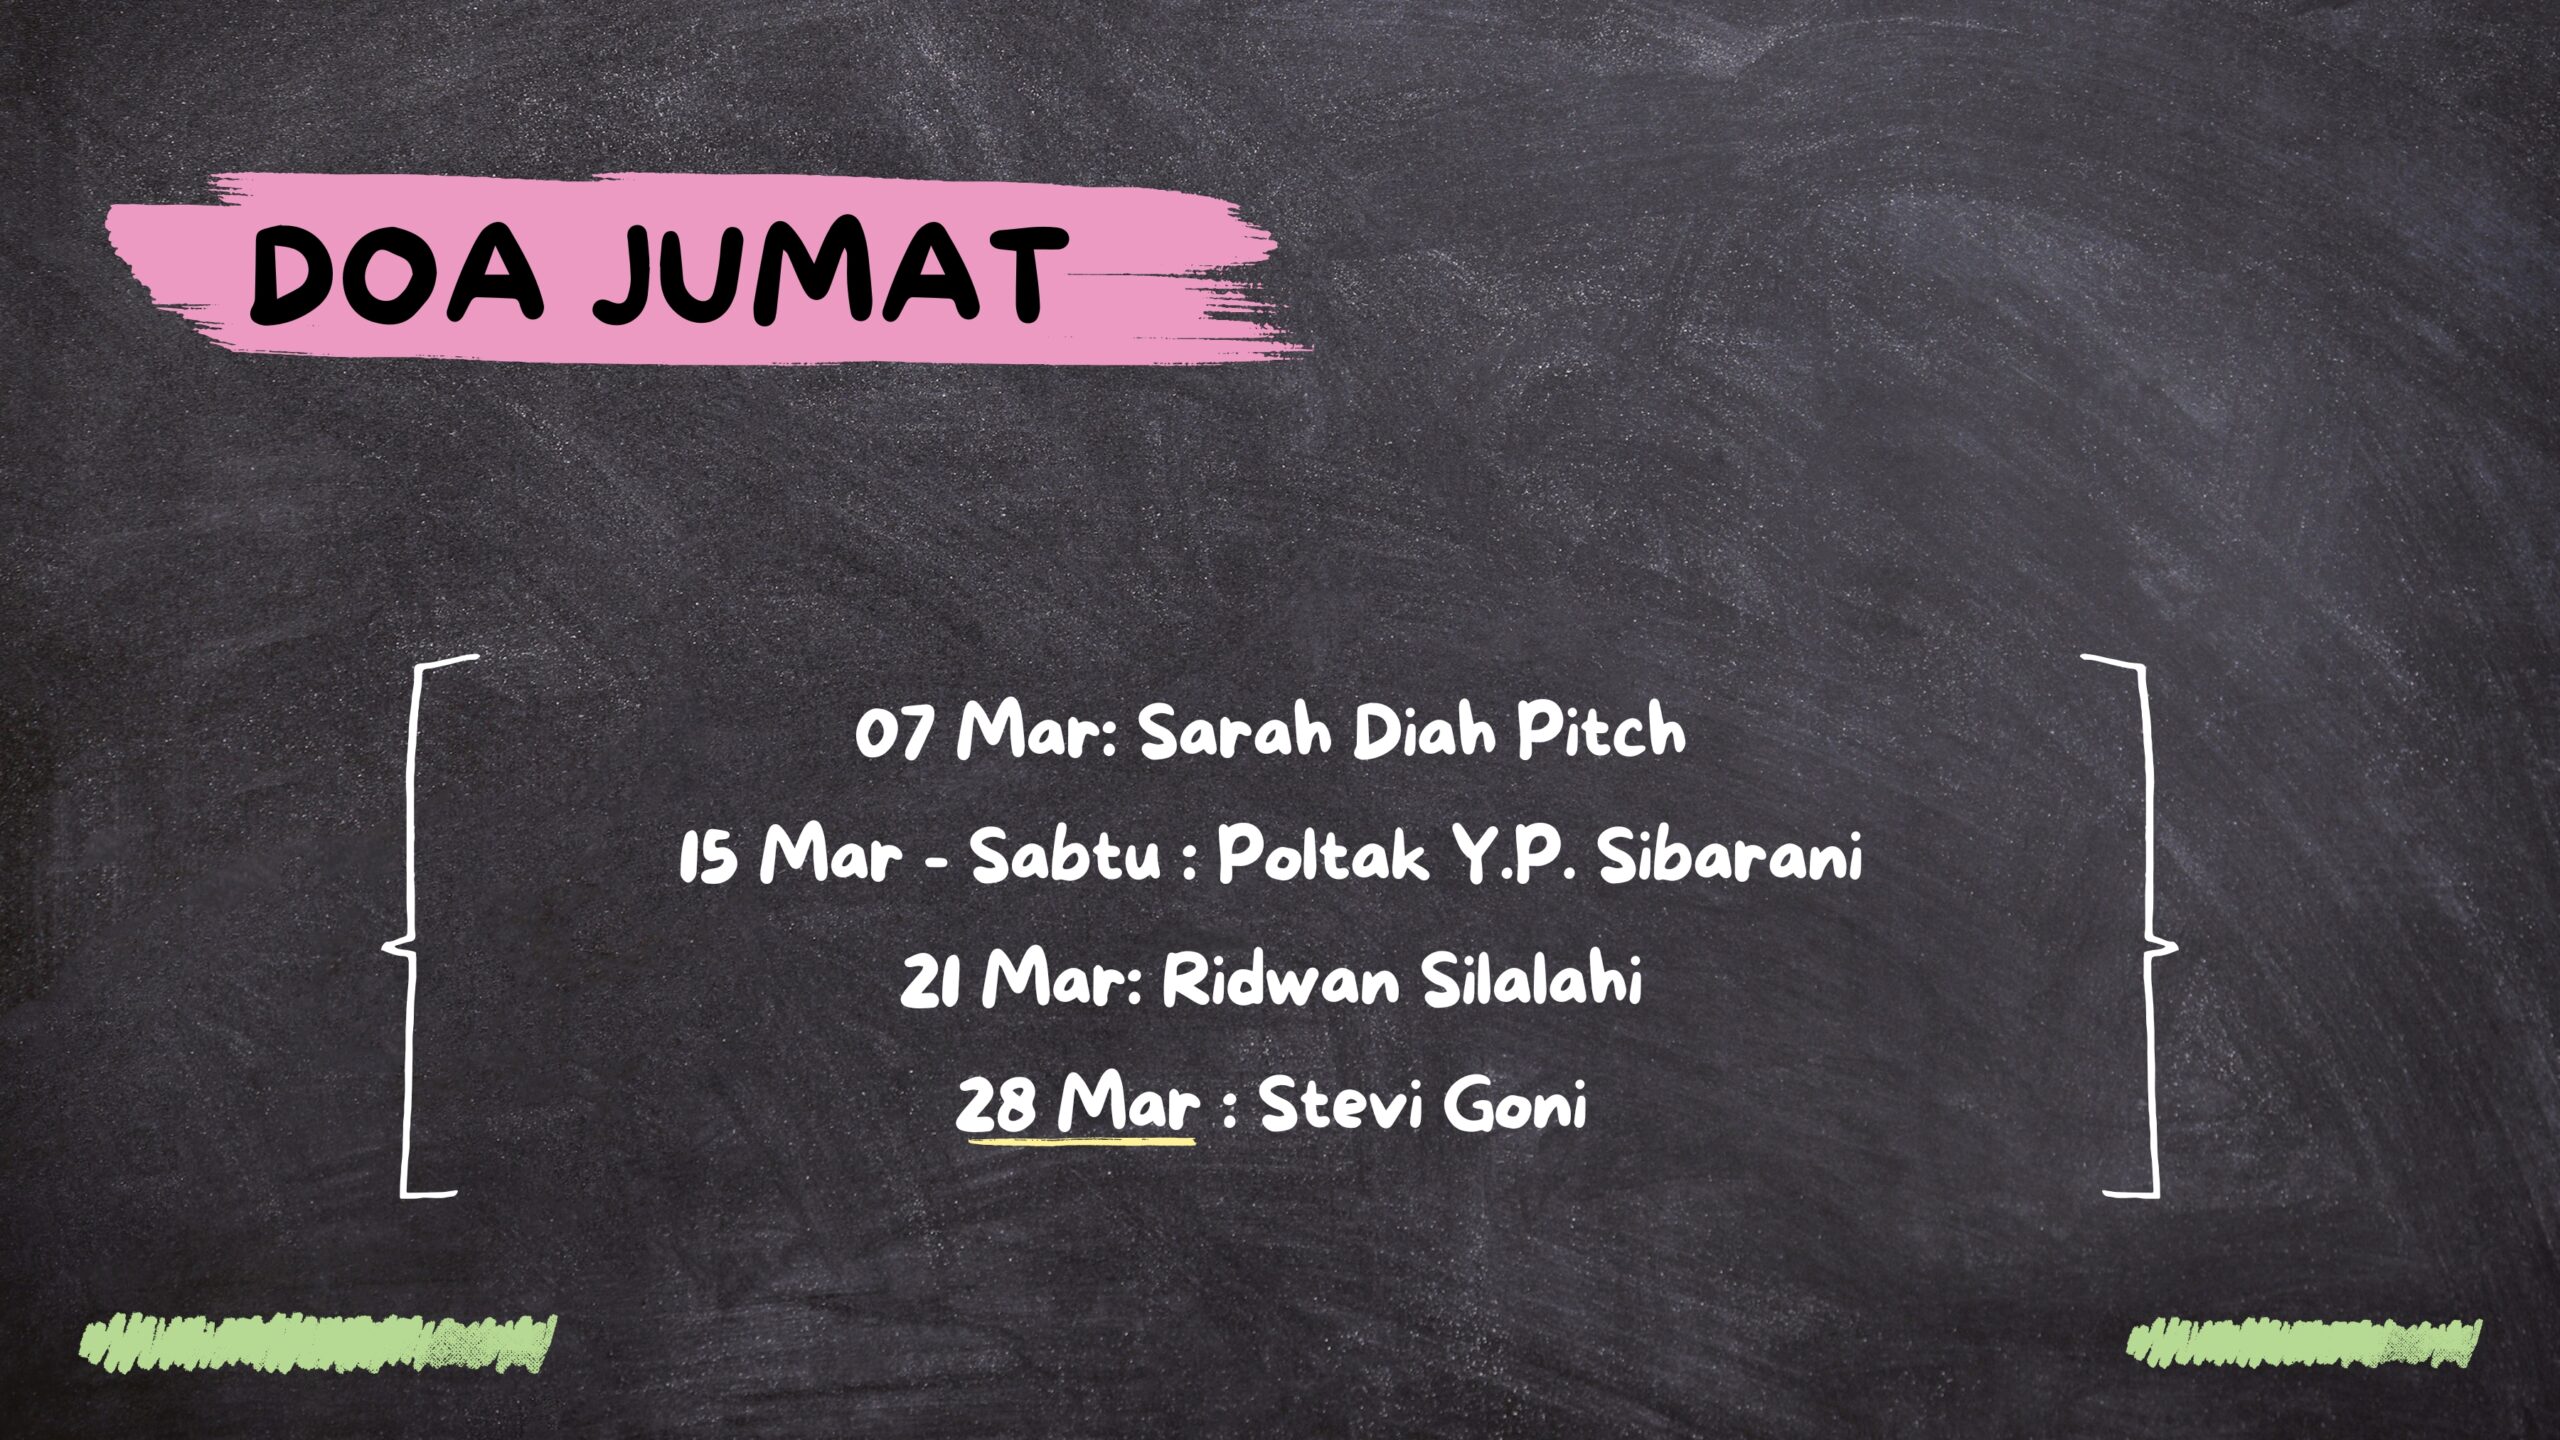 DOA JUMAT
07 Mar: Sarah Diah Pitch
15 Mar - Sabtu : Poltak Y.P. Sibarani
21 Mar: Ridwan Silalahi
28 Mar : Stevi Goni